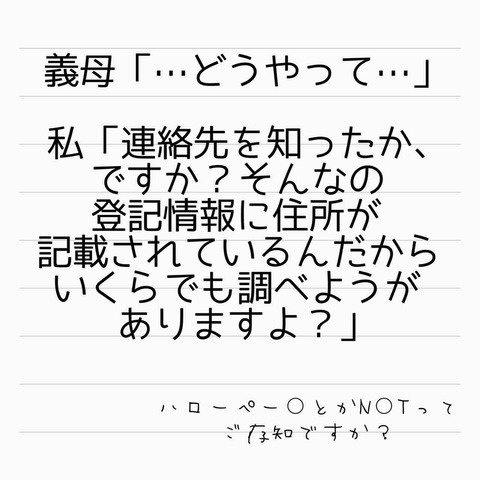 義母「…どうやって…」
私「連絡先を知ったか、
ですか？そんなの
登記情報に住所が
記載されているんだから
いくらでも調べようが
ありますよ？」
ハローペー〇とかN〇Tって
ご存知ですか？